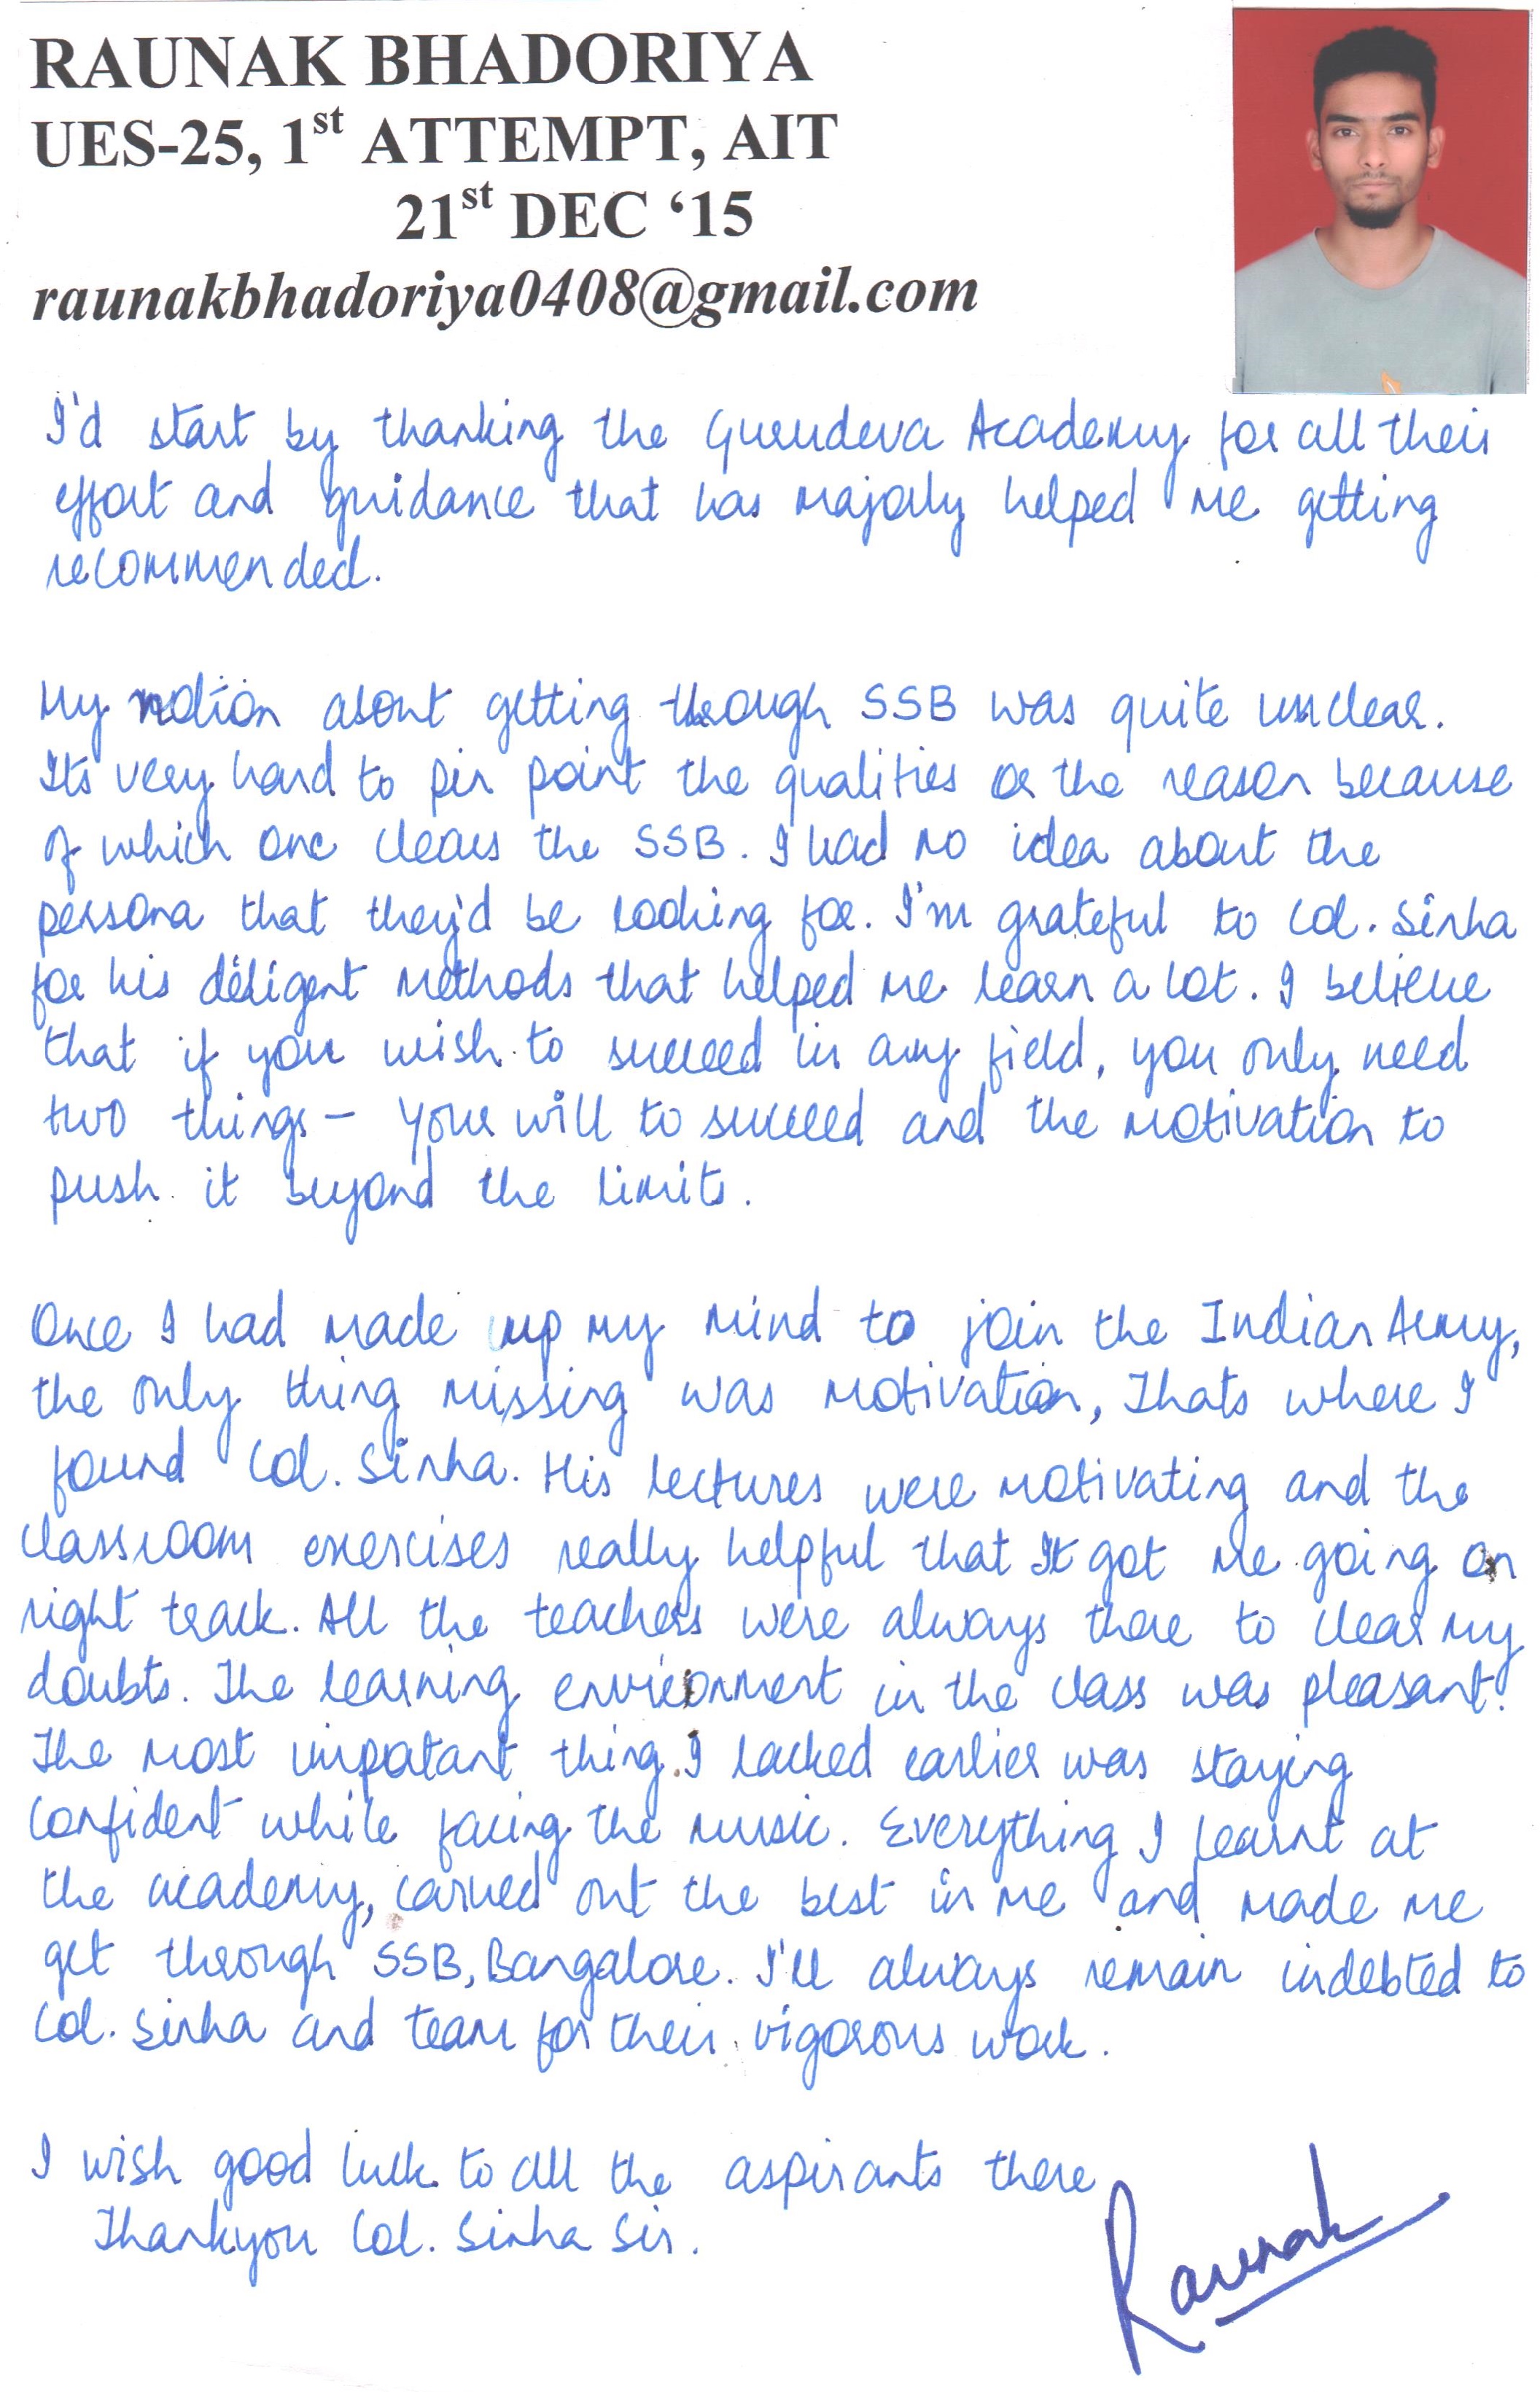 RAUNAK BHADORIYA
UES-25, 1st ATTEMPT, AIT
21st DEC ‘15
raunakbhadoriya0408@gmail.com
I'd start by thanking the Gurudeva Academy for all their
effort and guidance that has majorly helped me getting
recommended.
My notion about getting through SSB was quite unclear.
Its very hard to pin point the qualities or the reason because
of which one clears the SSB. I had no idea about the
persona that they'd be looking for. I'm grateful to Col. Sinha
for his diligent methods that helped me learn a lot. I believe
that if you wish to succeed in any field, you only need
two things - your will to succeed and the motivation to
push it beyond the limits.
Once I had made up my mind to join the Indian Army,
the only thing missing was motivation, Thats where I
found Col. Sinha. His lectures were motivating and the
classroom exercises really helpful that It got me going on
right track. All the teachers were always there to clear my
doubts. The learning environment in the class was pleasant.
The most impotant thing I lacked earlier was staying
confident while facing the music. Everything I learnt at
the academy, carved out the best in me and made me
get through SSB, Bangalore. I'll always remain indebted to
Col. Sinha and team for their vigorous work.
I wish good luck to all the aspirants there
Thankyou Col. Sinha Sir.
Raunak